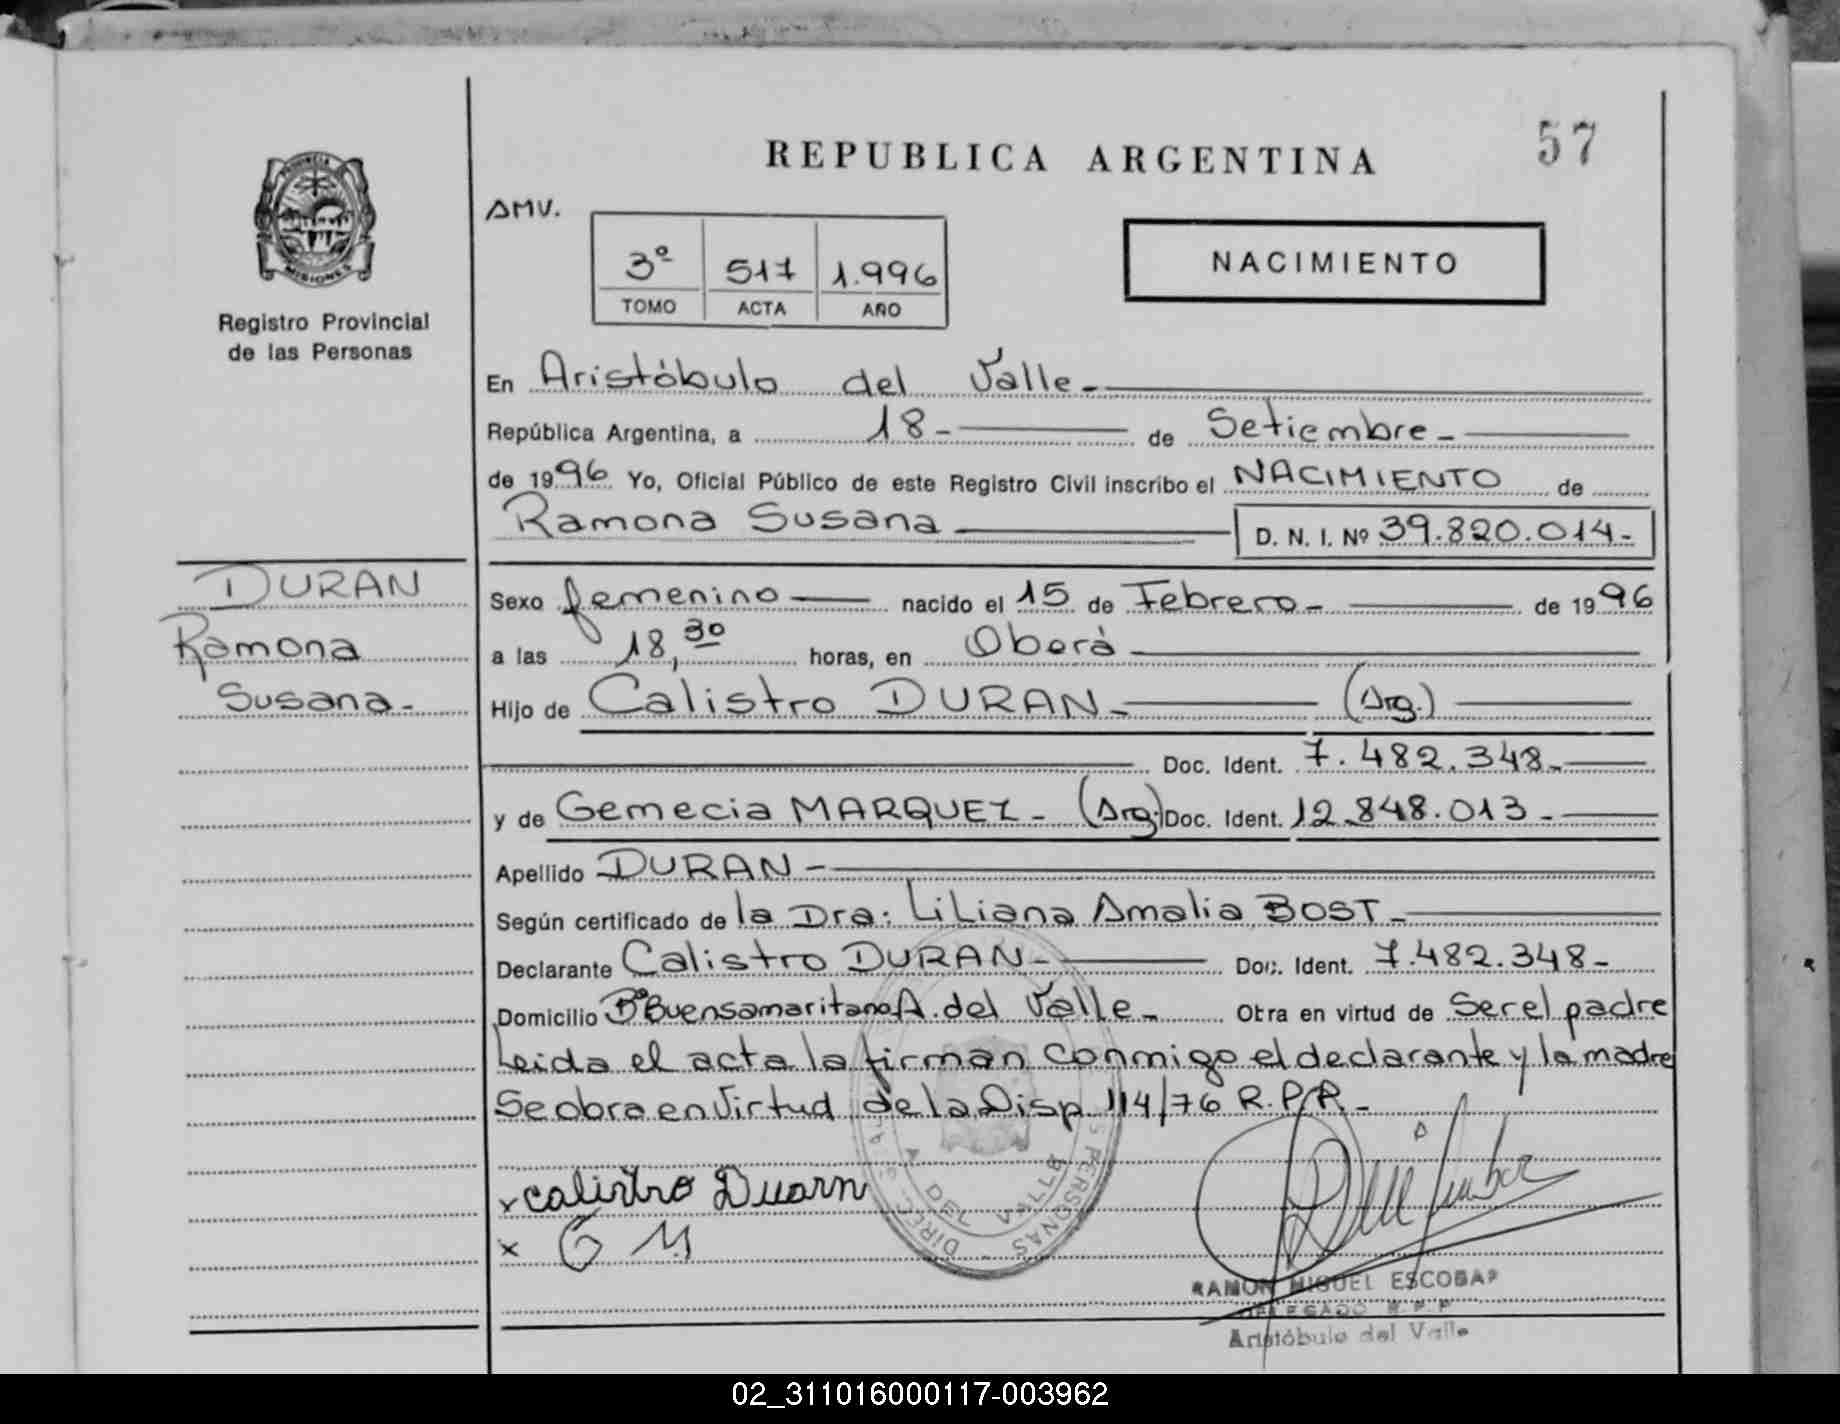 57
REPUBLICA ARGENTINA
AMV.
3º 517 1.996
TOMO ACTA AÑO
NACIMIENTO
PROVINCIA
MISIONES
Registro Provincial
de las Personas
En Aristóbulo del Valle-
República Argentina, a 18- de Setiembre-
de 1996 Yo, Oficial Público de este Registro Civil inscribo el NACIMIENTO de
Ramona Susana D. N. I. Nº 39.820.014-
DURAN
Ramona
Susana-
Sexo femenino nacido el 15 de Febrero- de 1996
a las 18,30 horas, en Oberá
Hijo de Calistro DURAN- (Arg.)
Doc. Ident. 7.482.348-
y de Gemecia MARQUEZ- (Arg.) Doc. Ident. 12.848.013-
Apellido DURAN-
Según certificado de la Dra: Liliana Amalia BOST-
Declarante Calistro DURAN- Doc. Ident. 7.482.348-
Domicilio Bº Buensamaritano A. del Valle- Otra en virtud de Ser el padre
Leida el acta la firman conmigo el declarante y la madre
Se obra en Virtud de la Disp. 114/76 R.P.P.-
x calistro Duarn
x G M
A DEL VALLE
PERSONAS - DIREC
RAMON MIGUEL ESCOBAR
DELEGADO R.P.P
Aristóbulo del Valle
02_311016000117-003962